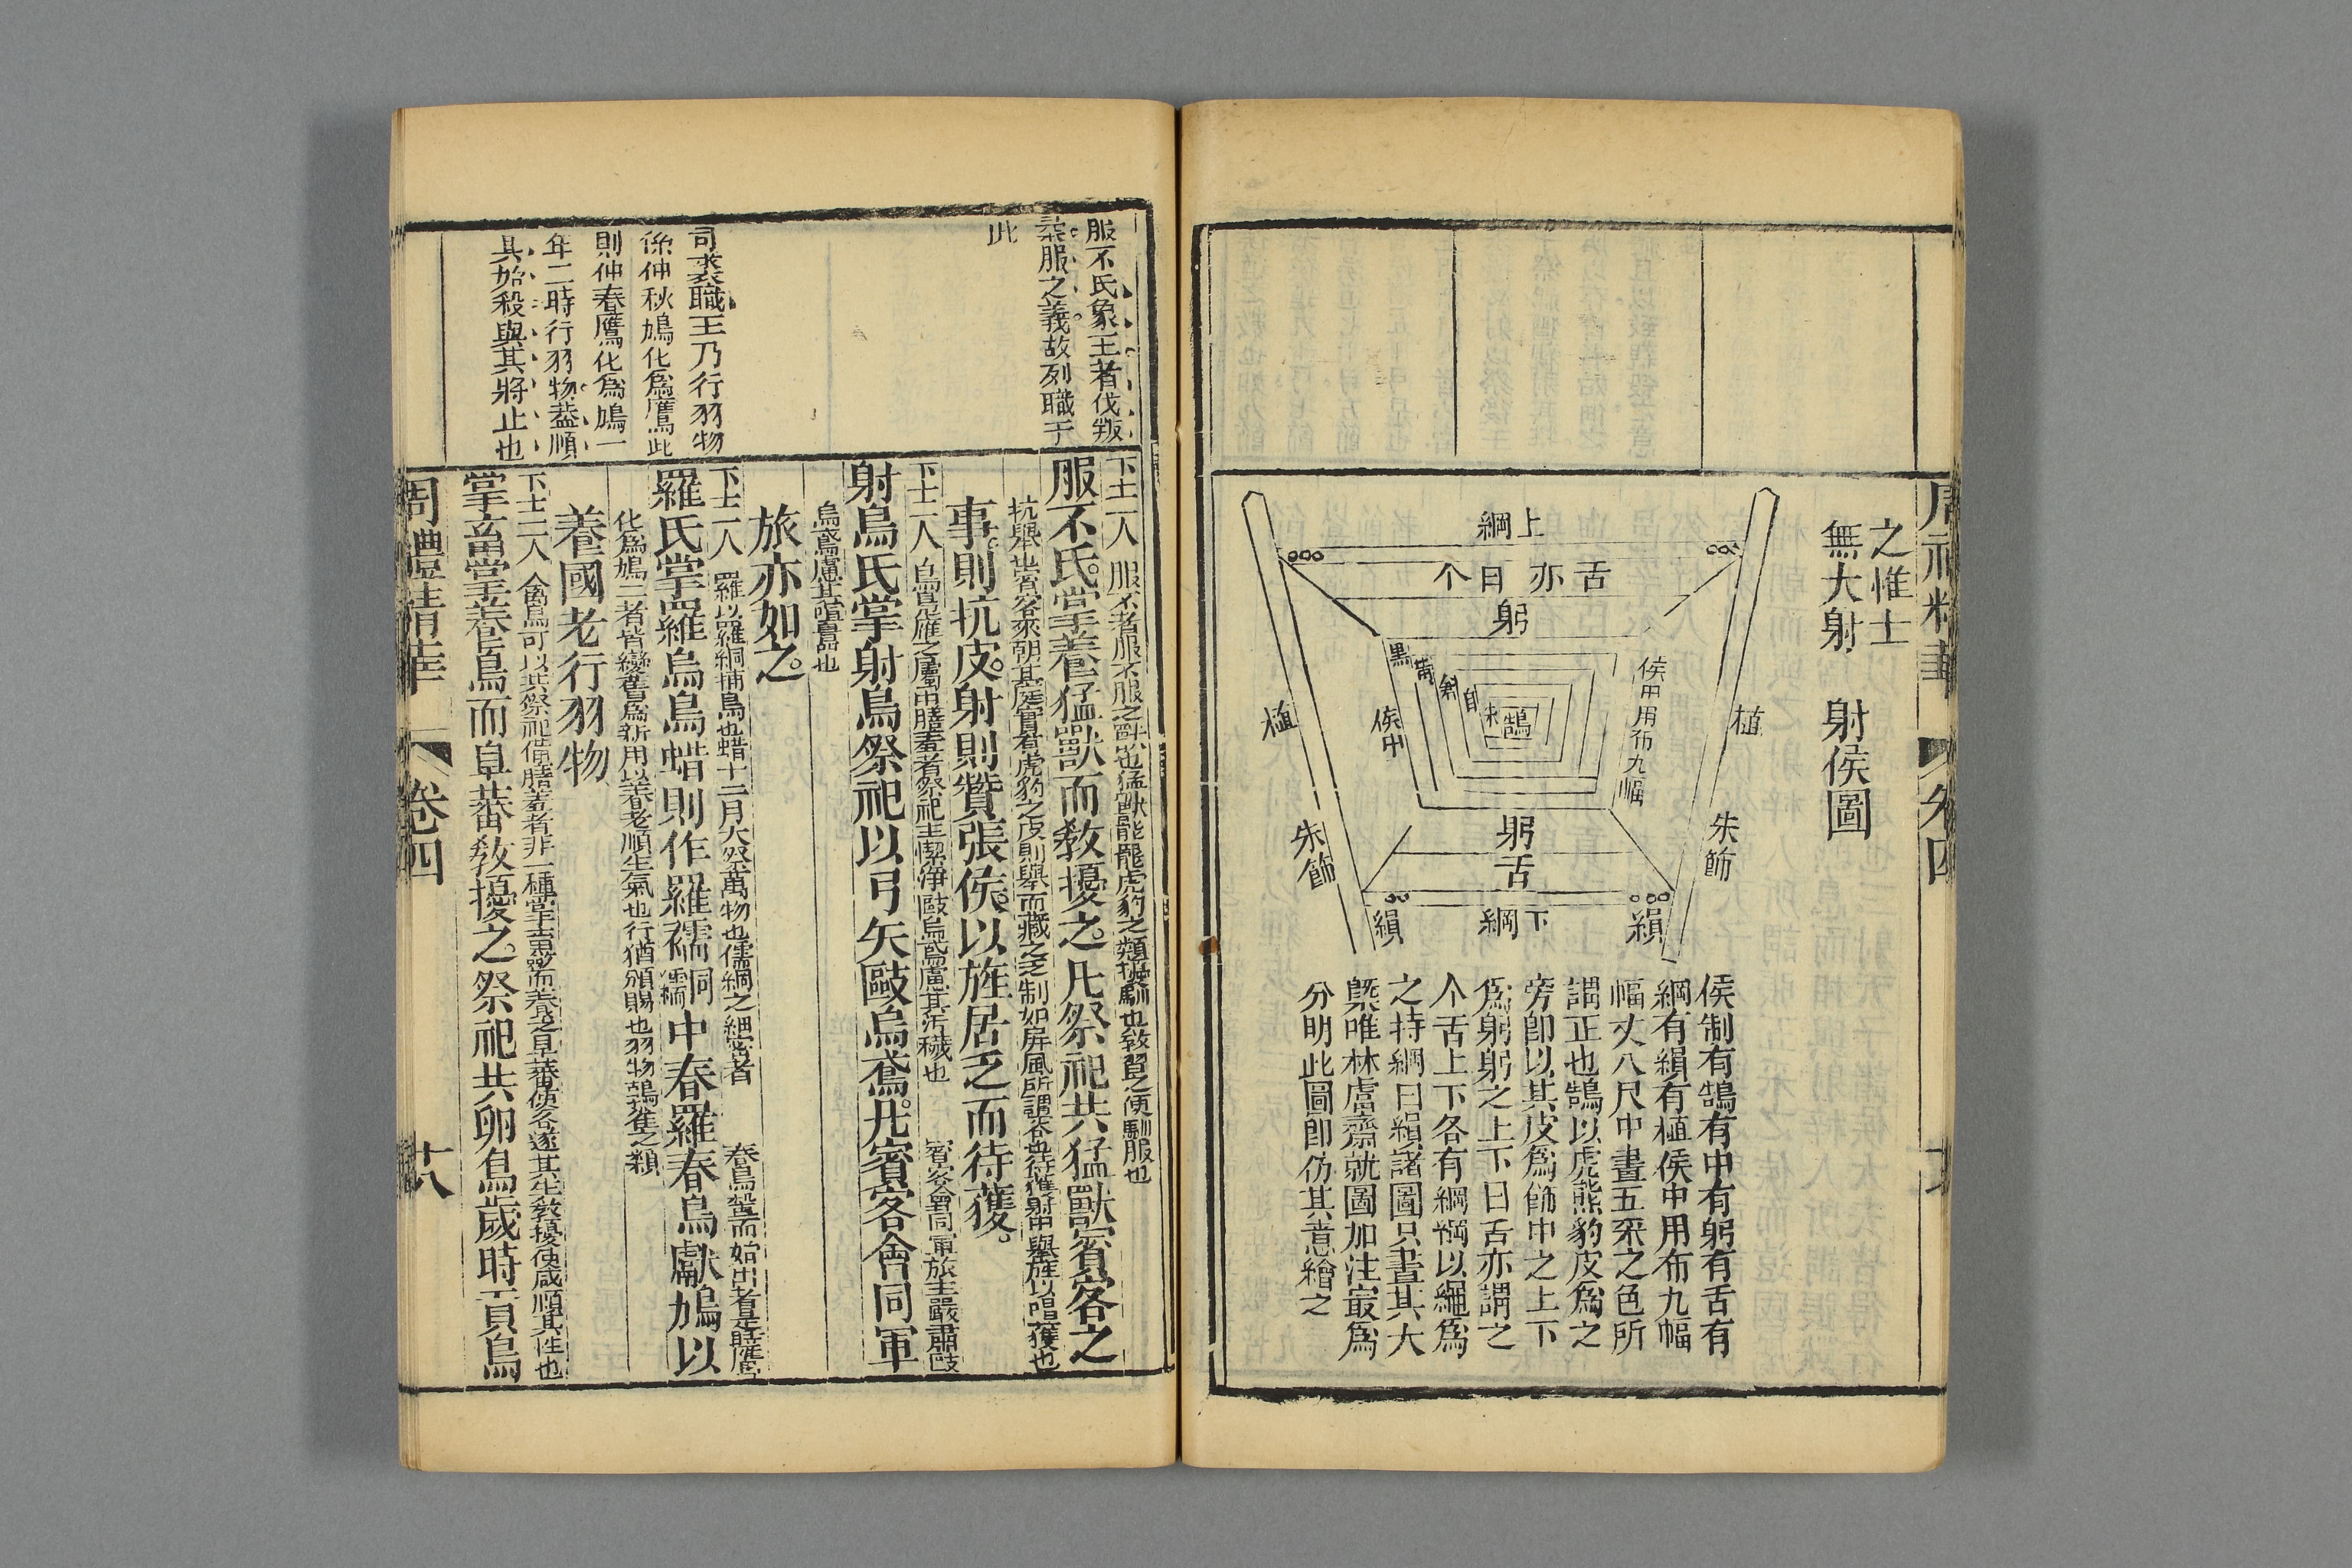 之惟士
無大射　射侯圖
上綱
舌亦曰个
躬
植
植
侯中
侯中用布九幅
鵠
朱
白
黃
黑
朱飾
朱飾
躬
舌
下綱
縜
縜
侯制有鵠有中有躬有舌有
綱有縜有植侯中用布九幅
幅丈八尺中畫五采之色所
謂正也鵠以虎熊豹皮爲之
旁卽以其皮爲飾中之上下
爲躬躬之上下曰舌亦謂之
个舌上下各有綱綱以繩爲
之持綱曰縜諸圖只畫其大
槩唯林虙齋就圖加注㝡爲
分明此圖卽仿其意繪之
服不氏象王者伐叛
柔服之義故列職于
此
司裘職王乃行羽物
係仲秋鳩化爲鷹此
則仲春鷹化爲鳩一
年二時行羽物葢順
其始殺與其將止也
下士一人　服不者服不服之獸也猛獸熊羆虎豹之類擾馴也敎習之使馴服也
服不氏掌養猛獸而敎擾之凡祭祀共猛獸賓客之
抗舉也賓客來朝其庭實有虎豹之皮則舉而藏之乏制如屏風所謂容也待獲射中舉旌以唱獲也
事則抗皮射則贊張侯以旌居乏而待獲
下士一人　烏鳧雁之屬中膳羞者祭祀主潔淨敺烏鳶慮其汚穢也　賓客會同軍旅主嚴肅敺
射烏氏掌射烏祭祀以弓矢敺烏鳶凡賓客會同軍
烏鳶慮其喧噐也
旅亦如之
下士一人　羅以羅網捕鳥也蜡十二月大祭萬物也襦網之細密者　春鳥蟄而始出者是時鷹
羅氏掌羅烏鳥蜡則作羅襦中春羅春鳥獻鳩以
化爲鳩二者皆變舊爲新用以養老順生氣也行猶頒賜也羽物鶉雀之類
養國老行羽物
下士二人　禽鳥可以共祭祀備膳羞者非一種掌畜畧而養之阜蕃使各遂其生敎擾使咸順其性也
掌畜掌養鳥而阜蕃敎擾之祭祀共卵鳥歲時貢鳥
周禮精華　卷四　廿八